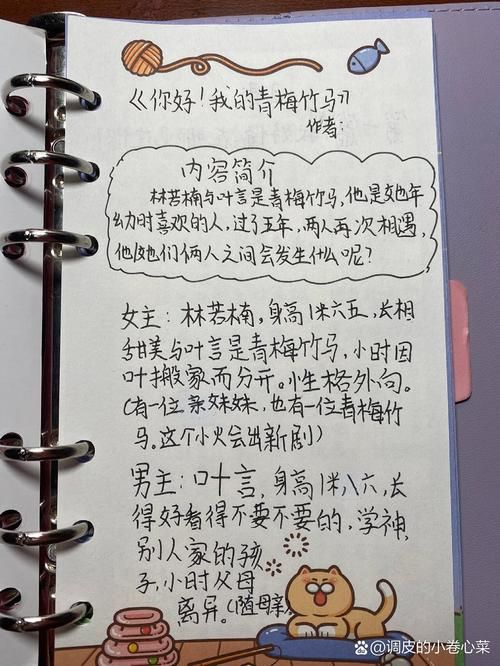 《你好!我的青梅竹马》
作者:
内容简介
林若楠与叶言是青梅竹马,他是她年
幼时喜欢的人,过了五年,两人再次相遇,
他/她们俩人之间会发生什么呢?
女主:林若楠,身高1米六五,长相
甜美与叶言是青梅竹马,小时因
叶搬家而分开。性格外向。
(有一位亲妹妹,也有一位青梅竹
马。这个小火会出新剧)
男主:叶言,身高1米八六,长
得好看得不要不要的,学神,
别人家的孩
子,小时父母
离异。(随母亲)
@调皮的小卷心菜